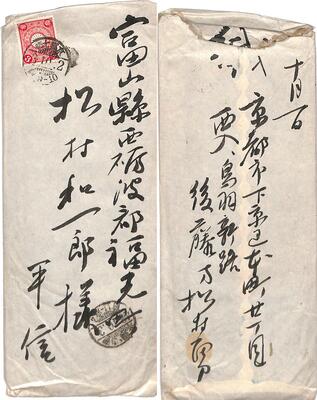 富山縣西礪波郡福光
松村和一郎様
平信
十月一日
京都市下京區本町廿一丁目
西入鳥羽新路
後藤方松村